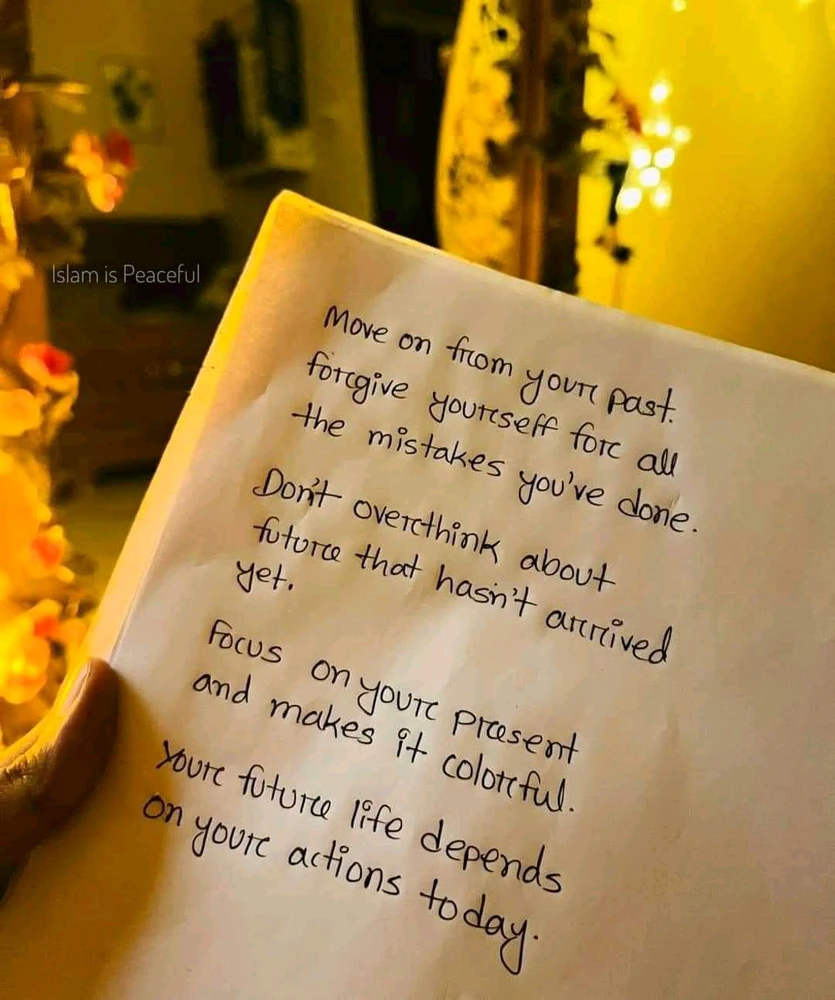 Islam is Peaceful
Move on from your past.
forgive yourself for all
the mistakes you've done.
Don't overthink about
future that hasn't arrived
yet.
Focus on your present
and makes it colorful.
Your future life depends
on your actions today.